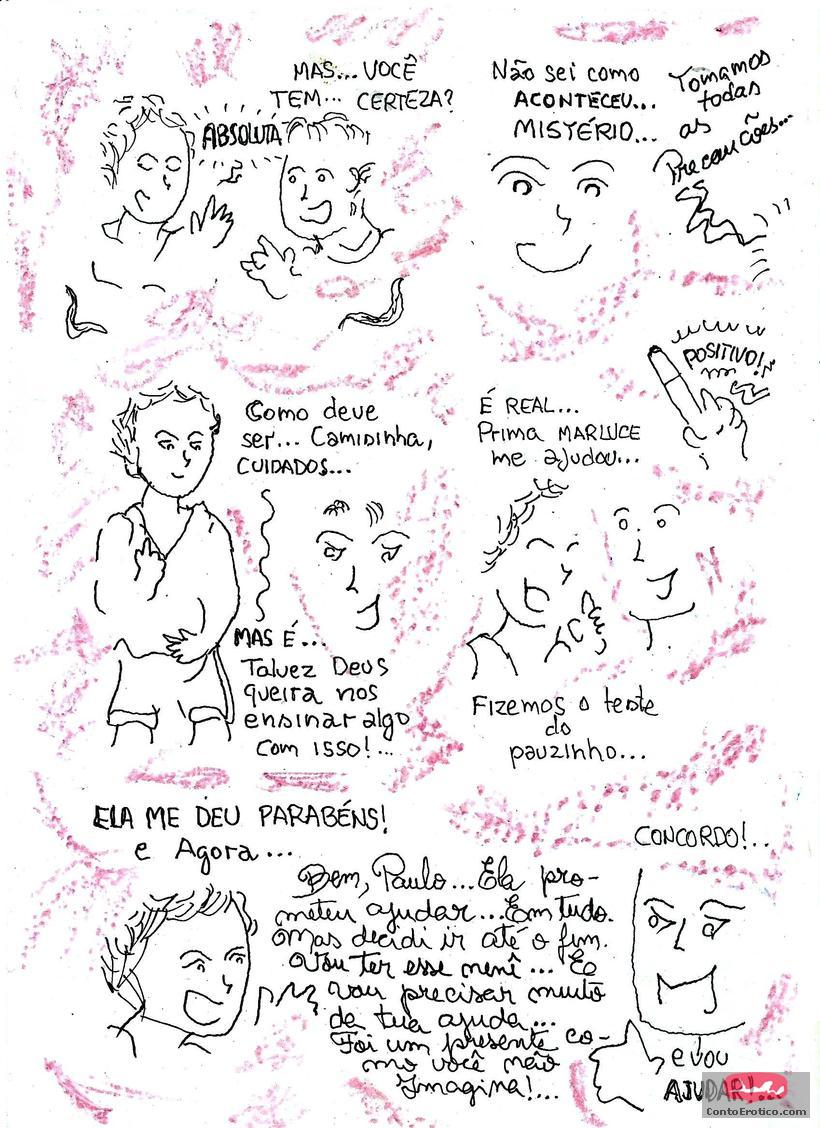 MAS... VOCÊ
TEM... CERTEZA?
ABSOLUTA
Não sei como
ACONTECEU...
MISTÉRIO...
Tomamos
todas
as
Precauções...
Como deve
ser... Camisinha,
CUIDADOS...
MAS É...
Talvez Deus
queira nos
ensinar algo
com isso!...
POSITIVO!
É REAL...
Prima MARLUCE
me ajudou...
Fizemos o teste
do
pauzinho...
ELA ME DEU PARABÉNS!
e Agora...
Bem, Paulo... Ela pro-
meteu ajudar... Em tudo.
Mas decidi ir até o fim.
Vou ter esse nenê... E
vou precisar muito
da tua ajuda...
Foi um presente co-
mo você não
Imagina!...
CONCORDO!..
e vou
AJUDAR!...
ContoErotico.com